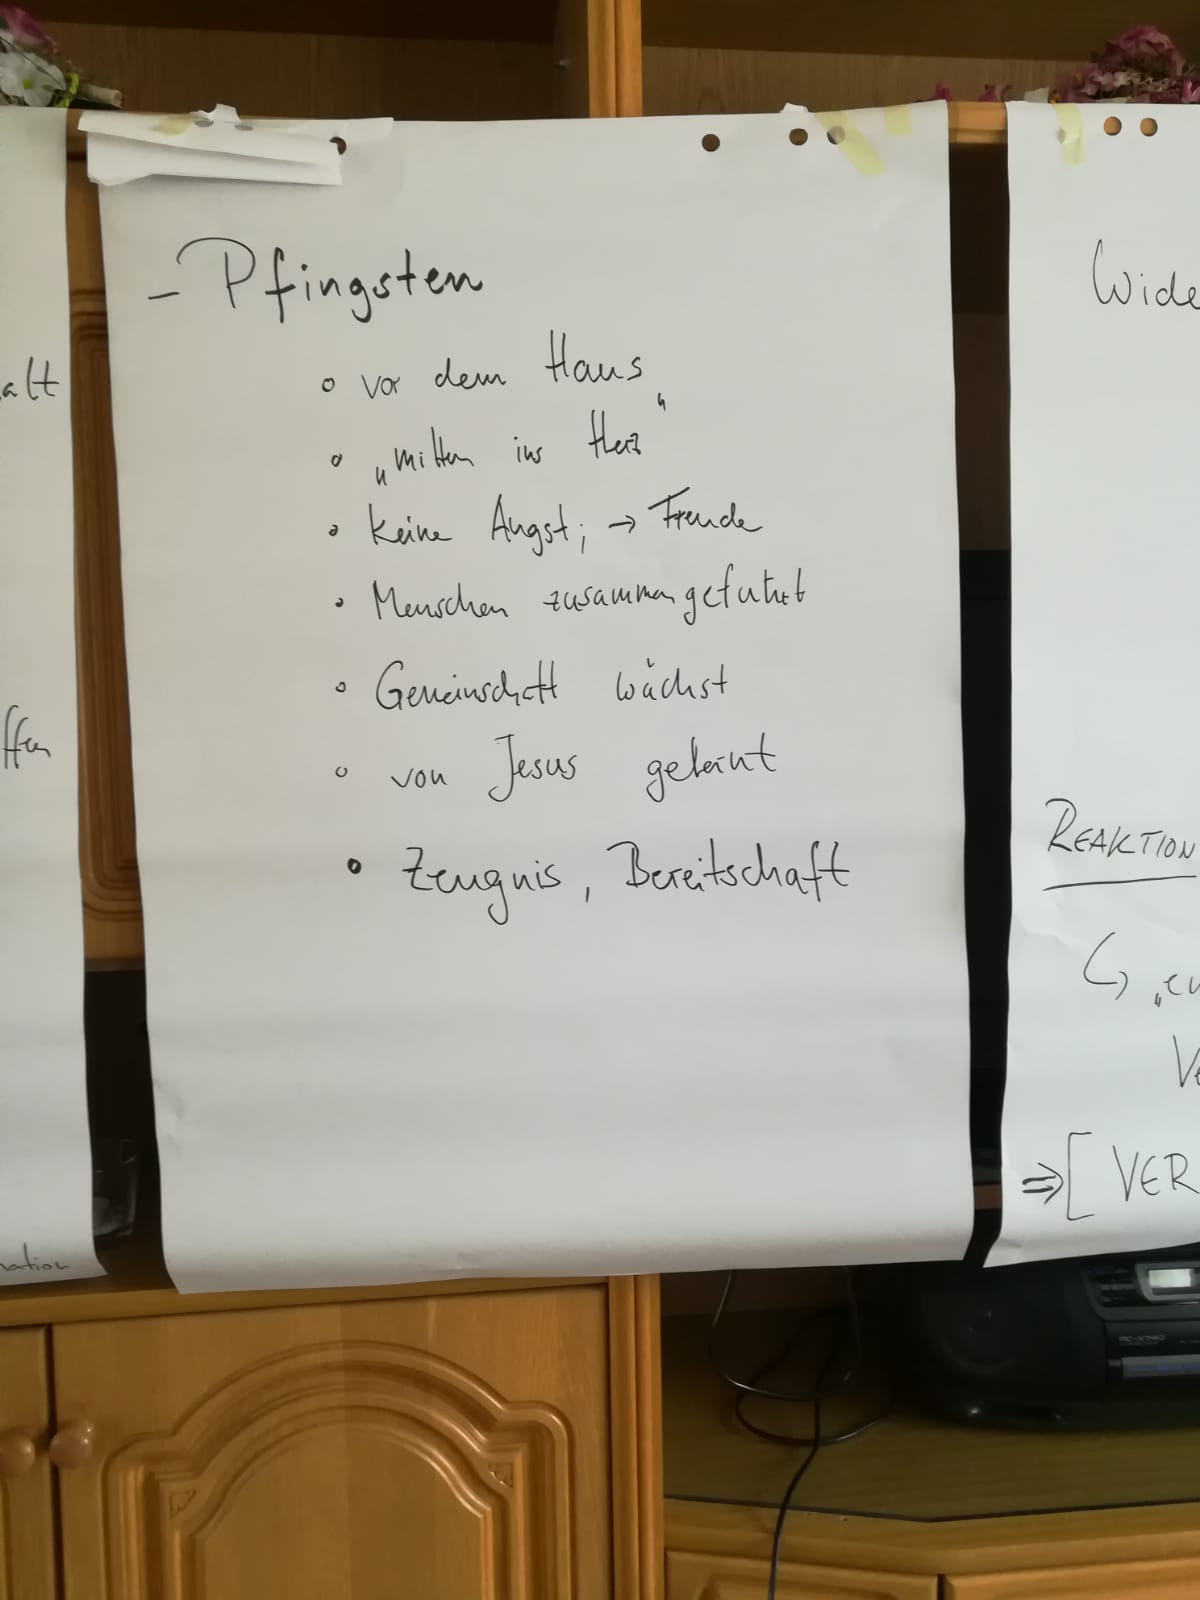 – Pfingsten
o vor dem Haus
o „mitten ins Herz"
o keine Angst; → Freude
o Menschen zusammengeführt
o Gemeinschaft wächst
o von Jesus gelernt
• Zeugnis, Bereitschaft
alt
ffen
nation
Wide
REAKTION
↳ „en
Ve
⇒ [ VER